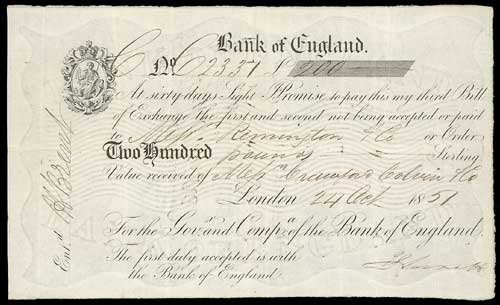 Bank of England.
No. C 2337 £ 200
At sixty days Sight I Promise to pay this my third Bill
of Exchange the first and second not being accepted or paid
to Messrs. Remington & Co or Order
Two Hundred pounds Sterling
Value received of Messrs Crawford Colvin & Co
London 24 Oct 1851
For the Govr. and Compa. of the Bank of England
The first duly accepted is with
the Bank of England
Entd.